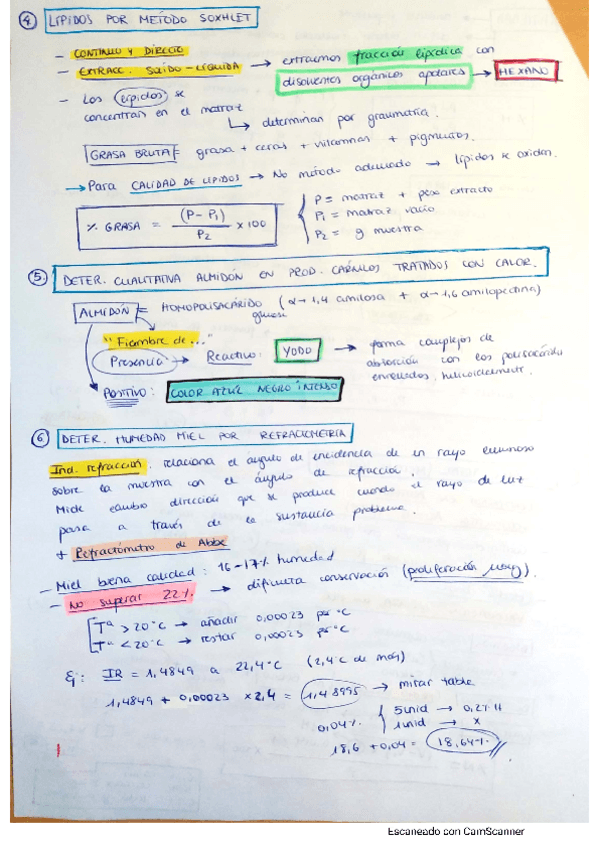 4 LÍPIDOS POR MÉTODO SOXHLET
- CONTINUO Y DIRECTO
- EXTRACC. SÓLIDO-LÍQUIDA → extraemos fracción lipídica con
disolventes orgánicos apolares → HEXANO
- Los lípidos se
concentran en el matraz
↳ determinan por gravimetría.
GRASA BRUTA = grasa + ceras + vitaminas + pigmentos.
→ Para CALIDAD DE LÍPIDOS → No método adecuado → lípidos se oxidan.
% GRASA = (P-P1) / P2 x 100
P = matraz + peso extracto
P1 = matraz vacío
P2 = g muestra
5. DETER. CUALITATIVA ALMIDÓN EN PROD. CÁRNICOS TRATADOS CON CALOR.
ALMIDÓN = HOMOPOLISACÁRIDO (α-1,4 amilosa + α-1,6 amilopectina)
glucosa
"Fiambre de..."
Presencia → Reactivo: YODO → forma complejos de
absorción con los polisacáridos
enrollados helicoidalmente.
POSITIVO: COLOR AZUL NEGRO INTENSO
6 DETER. HUMEDAD MIEL POR REFRACTOMETRÍA
Ind. refracción: relaciona el ángulo de incidencia de un rayo luminoso
sobre la muestra con el ángulo de refracción.
Mide cambio dirección que se produce cuando el rayo de luz
pasa a través de la sustancia problema.
+ Refractómetro de Abbe
- Miel buena calidad: 16-17% humedad
- No superar 22% → dificulta conservación (proliferación µorg).
Tª > 20°C → añadir 0,00023 por °C
Tª < 20°C → restar 0,00023 por °C
Ej: IR = 1,4849 a 22,4°C (2,4°C de más)
1,4849 + 0,00023 x 2,4 = 1,48995 → mirar tabla
5 unid → 0,2
0,04% 1 unid → x
18,6 + 0,04 = 18,64%
Escaneado con CamScanner